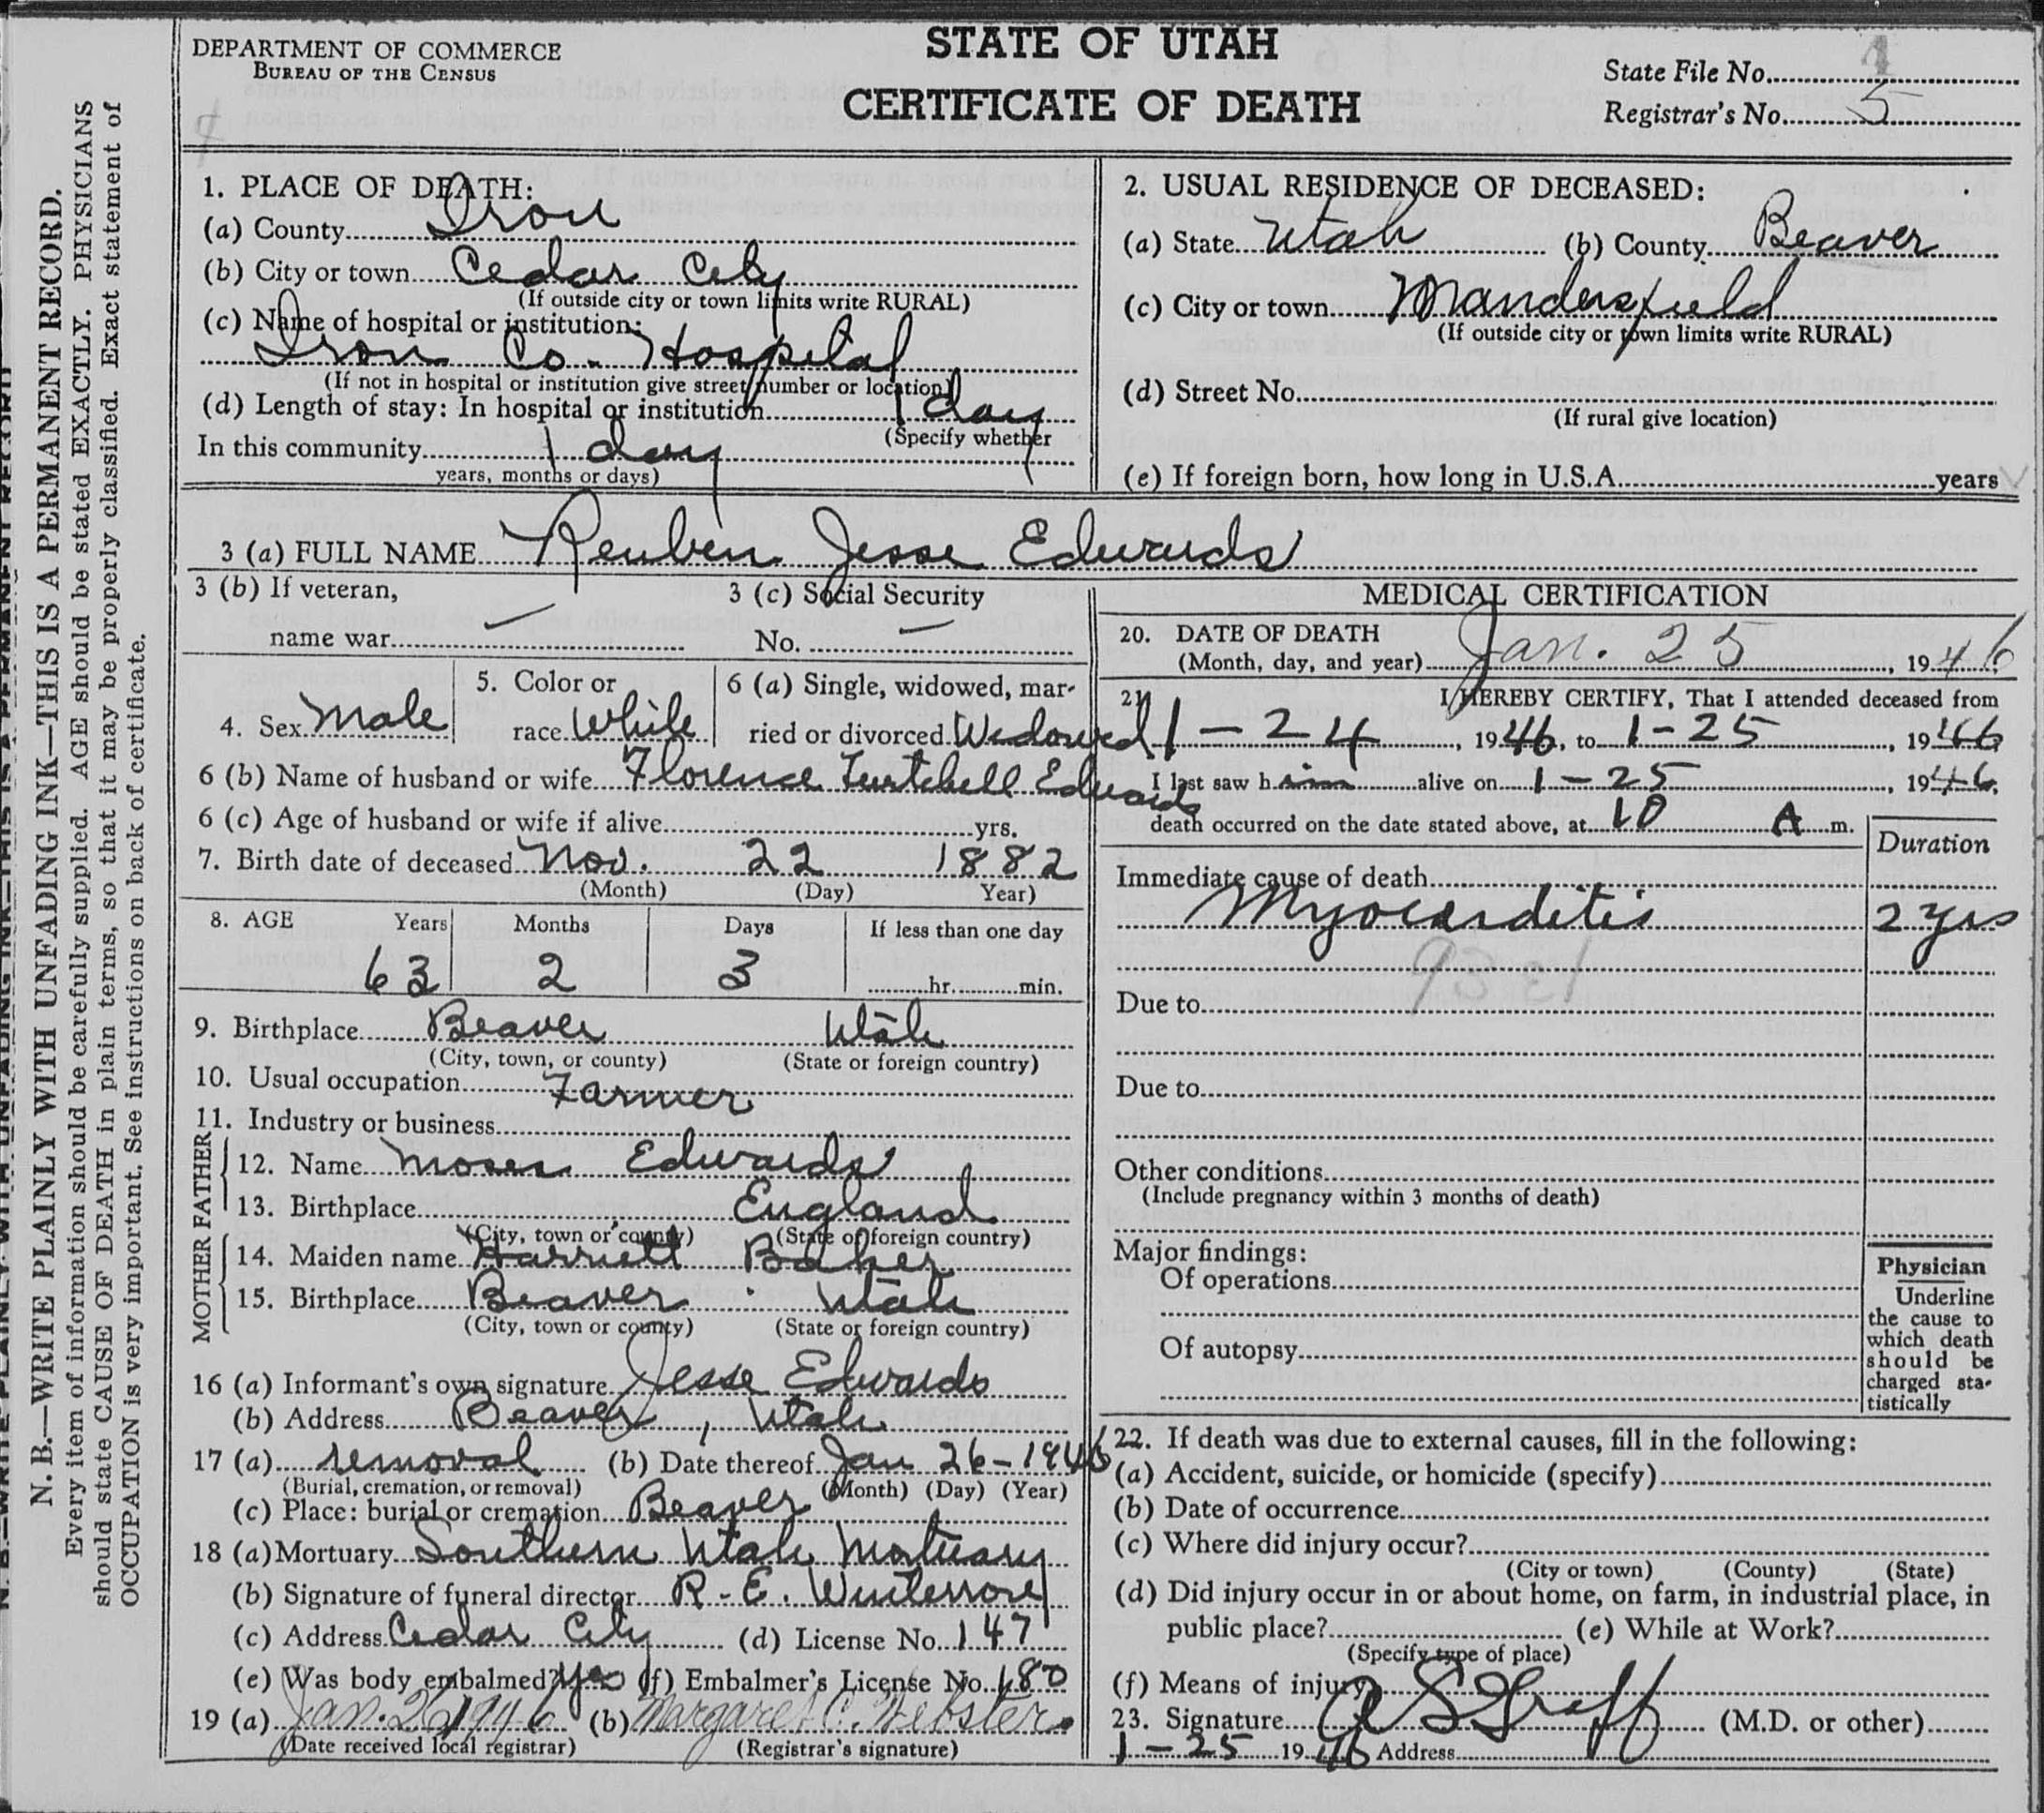 DEPARTMENT OF COMMERCE
BUREAU OF THE CENSUS
STATE OF UTAH
CERTIFICATE OF DEATH
State File No.
Registrar's No. 5
N. B.—WRITE PLAINLY WITH UNFADING INK—THIS IS A PERMANENT RECORD.
Every item of information should be carefully supplied. AGE should be stated EXACTLY. PHYSICIANS
should state CAUSE OF DEATH in plain terms, so that it may be properly classified. Exact statement of
OCCUPATION is very important. See instructions on back of certificate.
1. PLACE OF DEATH:
(a) County Iron
(b) City or town Cedar City
(If outside city or town limits write RURAL)
(c) Name of hospital or institution:
Iron Co. Hospital
(If not in hospital or institution give street number or location)
(d) Length of stay: In hospital or institution 1 day
(Specify whether
In this community 1 day
years, months or days)
2. USUAL RESIDENCE OF DECEASED:
(a) State Utah (b) County Beaver
(c) City or town Mandersfield
(If outside city or town limits write RURAL)
(d) Street No.
(If rural give location)
(e) If foreign born, how long in U.S.A. years
3 (a) FULL NAME Reuben Jesse Edwards
3 (b) If veteran,
name war —
3 (c) Social Security
No. —
4. Sex Male
5. Color or
race White
6 (a) Single, widowed, mar-
ried or divorced Widowed
6 (b) Name of husband or wife Florence Twitchell Edwards
6 (c) Age of husband or wife if alive yrs.
7. Birth date of deceased Nov. 22 1882
(Month) (Day) Year)
8. AGE Years Months Days If less than one day
63 2 3 hr. min.
9. Birthplace Beaver Utah
(City, town, or county) (State or foreign country)
10. Usual occupation Farmer
11. Industry or business
FATHER
12. Name Moses Edwards
13. Birthplace England
(City, town or county) (State of foreign country)
MOTHER
14. Maiden name Harriett Baker
15. Birthplace Beaver Utah
(City, town or county) (State or foreign country)
16 (a) Informant's own signature Jesse Edwards
(b) Address Beaver, Utah
17 (a) removal (b) Date thereof Jan 26-1946
(Burial, cremation, or removal) (Month) (Day) (Year)
(c) Place: burial or cremation Beaver
18 (a) Mortuary Southern Utah Mortuary
(b) Signature of funeral director R. E.
(c) Address Cedar City (d) License No. 147
(e) Was body embalmed? yes (f) Embalmer's License No. 180
19 (a) Jan. 26 1946 (b) Margaret C. Webster
(Date received local registrar) (Registrar's signature)
MEDICAL CERTIFICATION
20. DATE OF DEATH
(Month, day, and year) Jan. 25, 1946
21 I HEREBY CERTIFY, That I attended deceased from
1-24, 1946, to 1-25, 1946
I last saw him alive on 1-25, 1946,
death occurred on the date stated above, at 10 A m.
Duration
Immediate cause of death
Myocarditis 2 yrs
Due to
Due to
Other conditions
(Include pregnancy within 3 months of death)
Major findings:
Of operations
Of autopsy
Physician
Underline
the cause to
which death
should be
charged sta-
tistically
22. If death was due to external causes, fill in the following:
(a) Accident, suicide, or homicide (specify)
(b) Date of occurrence
(c) Where did injury occur?
(City or town) (County) (State)
(d) Did injury occur in or about home, on farm, in industrial place, in
public place? (e) While at Work?
(Specify type of place)
(f) Means of injury
23. Signature Graff (M.D. or other)
1-25 1946 Address